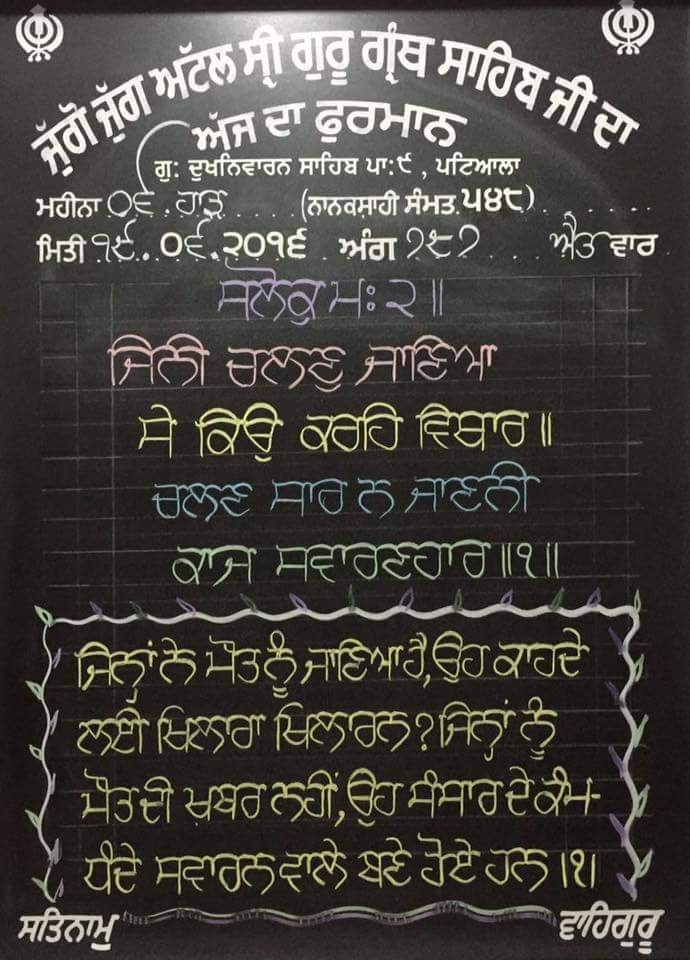 ਜੁੱਗੋ ਜੁੱਗ ਅੱਟਲ ਸ੍ਰੀ ਗੁਰੂ ਗ੍ਰੰਥ ਸਾਹਿਬ ਜੀ ਦਾ
ਅੱਜ ਦਾ ਫੁਰਮਾਨ
ਗੁ: ਦੁਖਨਿਵਾਰਨ ਸਾਹਿਬ ਪਾ:੯, ਪਟਿਆਲਾ
ਮਹੀਨਾ ੦੬.ਹਾੜ (ਨਾਨਕਸਾਹੀ ਸੰਮਤ.੫੪੮)
ਮਿਤੀ ੧੯.੦੬.੨੦੧੬ ਅੰਗ ੭੮੭ ਐਤ ਵਾਰ
ਸਲੋਕੁ ਮਃ ੨॥
ਜਿਨੀ ਚਲਣੁ ਜਾਣਿਆ
ਸੇ ਕਿਉ ਕਰਹਿ ਵਿਥਾਰ॥
ਚਲਣ ਸਾਰ ਨ ਜਾਣਨੀ
ਕਾਜ ਸਵਾਰਣਹਾਰ॥੧॥
ਜਿਨ੍ਹਾਂ ਨੇ ਮੌਤ ਨੂੰ ਜਾਣਿਆ ਹੈ, ਉਹ ਕਾਹਦੇ
ਲਈ ਖਿਲਾਰਾ ਖਿਲਾਰਨ? ਜਿਨ੍ਹਾਂ ਨੂੰ
ਮੌਤ ਦੀ ਖ਼ਬਰ ਨਹੀਂ, ਉਹ ਸੰਸਾਰ ਦੇ ਕੰਮ-
ਧੰਦੇ ਸਵਾਰਨ ਵਾਲੇ ਬਣੇ ਹੋਏ ਹਨ।੧।
ਸਤਿਨਾਮੁ ਵਾਹਿਗੁਰੂ